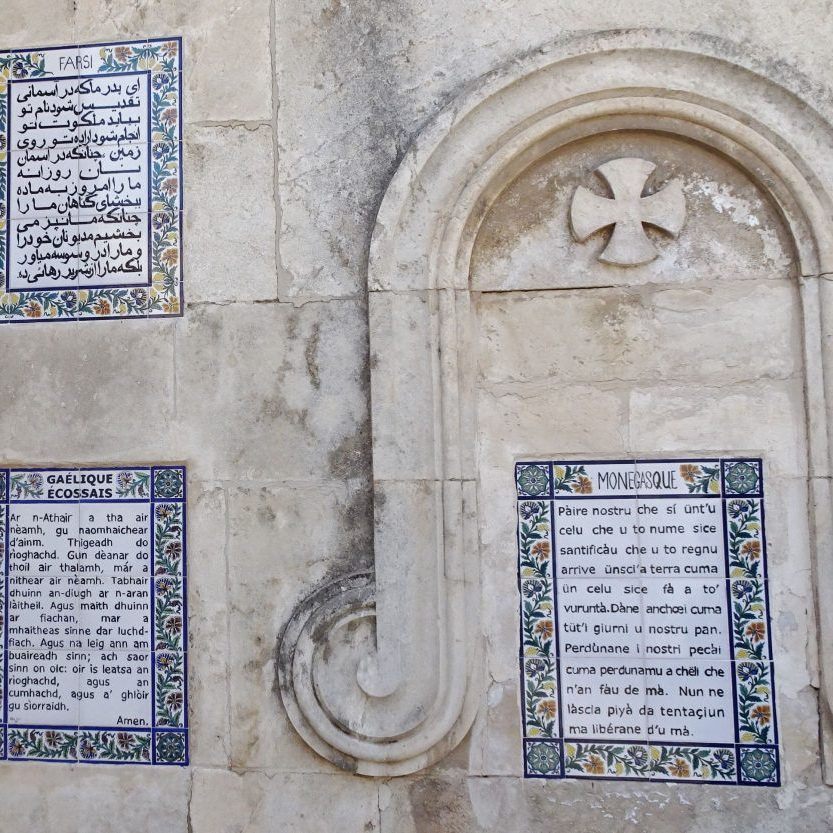 FARSI
ای پدر ماکه در اسمانی
تقدیس شود نام تو
بیاید ملکوت تو
انجام شود اراده تو روی
زمین چنانکه در اسمان
نان روزانه
ما را امروز به ما ده
ببخشای گناهان ما را
چنانکه ما نیز می
بخشیم مدیونان خود را
و ما را در وسوسه میاور
بلکه ما را از شریر رهائی ده
GAÉLIQUE
ÉCOSSAIS
Ar n-Athair a tha air
nèamh, gu naomhaichear
d'ainm. Thigeadh do
rìoghachd. Gun dèanar do
thoil air thalamh, már a
nithear air nèamh. Tabhair
dhuinn an-diugh ar n-aran
làitheil. Agus maith dhuinn
ar fiachan, mar a
mhaitheas sinne dar luchd-
fiach. Agus na leig ann am
buaireadh sinn; ach saor
sinn on olc: oir is leatsa an
rìoghachd, agus an
cumhachd, agus a' ghlòir
gu sìorraidh.
Amen.
MONEGASQUE
Pàire nostru che sí ünt'u
celu che u to nume sice
santificàu che u to regnu
arrive ünsci'a terra cuma
ün celu sice fà a to'
vuruntà. Dàne anchœi cuma
tüt'i giurni u nostru pan.
Perdùnane i nostri pecài
cuma perdunamu a chëli che
n'an fàu de mà. Nun ne
làscia piyà da tentaçiun
ma libérane d'u mà.